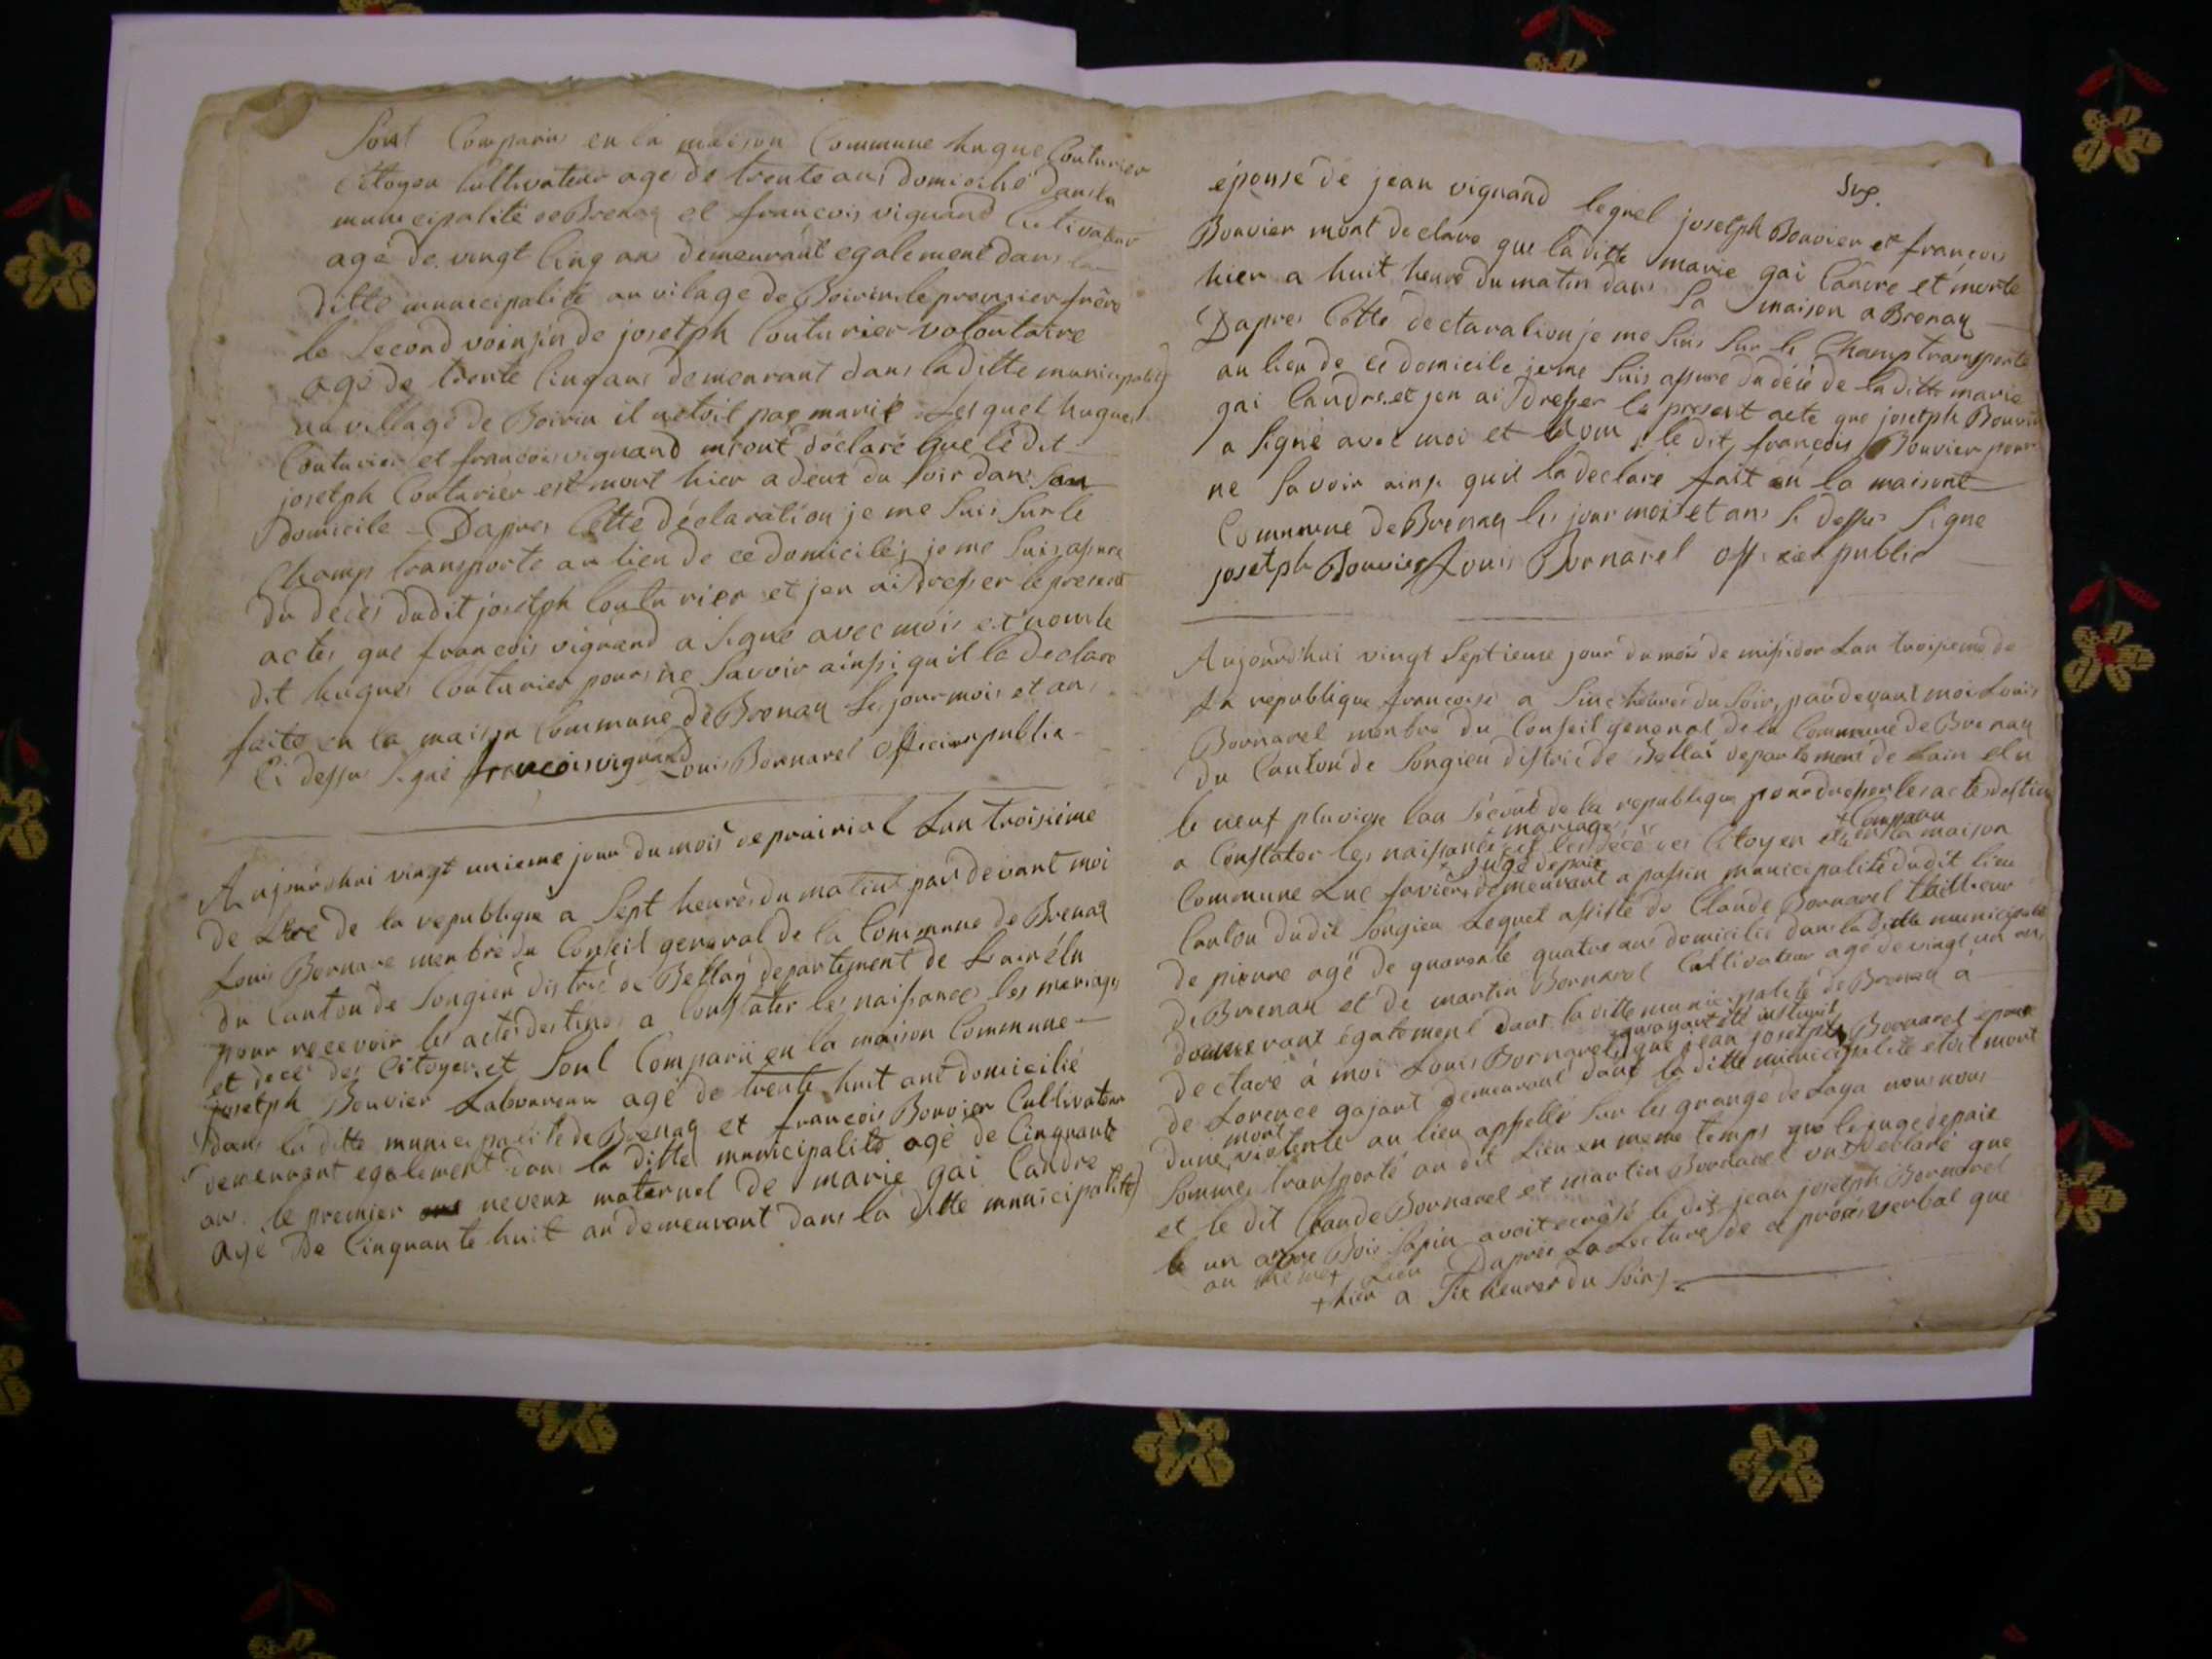 Sont Comparus en la maison Commune hugue Couturier
Citoyen Cultivateur agé de trente ans domicilié dans la
municipalité de Brenaz et francois vignand Cultivateur
agé de vingt Cinq ans demeurant egalement dans la
ditte municipalité au vilage de Boirin le premier frère
le Second voinsin de josetph Couturier volontaire
agé de trente Cinq ans demeurant dans laditte municipalité
au village de Boirin il netoit pas marié Lesquel hugues
Couturier et francois vignand mont déclaré que le dit
josetph Couturier est mort hier a deux du Soir dans Son
domicile – Dapres Cette déclaration je me Suis Sur le
Champ transporte au lieu de ce domicile, je me Suis assure
du decès dudit josetph Couturier et jen ai dresser le present
actes que francois vignand a Signé avec mois et nom le
dit hugues Couturier pour ne Savoir ainssi qu il la declare
faite en la maison Commune de Brenaz les jour mois et an
Ci dessus Signé francois vignand Louis Bornarel officier public
Aujourdhui vingt unieme jour du mois de prairial Lan troisième
de Lere de la republique a Sept heures du matint par devant moi
Louis Bornare menbre du Conseil general de la Commune de Brenaz
du Canton de Songieu distric de Bellay departement de Lain élu
pour recevoir les actes destinés a Constater les naissances les mariages
et decè des Citoyens et Sont Comparü en la maison Commune
josetph Bouvier Laboureur agé de trente huit ant domicilié
dans la ditte municipalité de Brenaz et francois Bouvier Cultivateur
demeurant egalement dans la ditte municipalité agé de Cinquante
ans le premier neveux maternel de marie gai Candre
agé De Cinquante huit an demeurant dans la ditte municipalité
Sup.
éponse de jean vignand leqnel josetph Bouvier et françois
Bouvier mont declare que laditte marie gai Candre et morte
hier a huit heure du matin dans Sa maison a Brenaz
Dapres Cette declaration je me Suis Sur le Champ transporté
au lieu de ce domicile je me Suis assure du décé de la ditte marie
gai Candre et jen ai dresser le present acte que josetph Bouvier
a Signé avec moi et nom le dit françois Bouvier pour
ne Savoir ainsi quil la declaré fait en la maisont
Commune de Brenaz les jour mois et ans Si dessus Signe
josetph Bouvier Louis Bornarel officier public
Aujourdhui vingt Septieme jour du mois de missidor Lan troisieme de
La republique francoise a Sinc heures du Soir, par devant moi Louis
Bornarel menbre du Conseil general de la Commune de Brenaz
du Canton de Songieu distric de Bellai departement de Lain elu
le neuf pluviose lan Second de la republique pour dresser les actes destinés
a Constater les naissance mariage et les décè des Citoyen + Comparu et en la maison
Commune Luc favier + juge de paix demeurant a passin municipalité dudit lieu
Canton dudit Songieu Lequel assisté de Claude Bornarel tallieur
de pierre agé de quarante quatre ans domicilié dans laditte municipalité
De Brenaz et de martin Bornarel Cultivateur agé de vingt un ans
demeurant également dans la ditte municipalité de Brenaz a
declaré à moi Louis Bornarel quayant été instruit que jean josetph Bornarel epoux
de Lorence gajant demeurant dans la ditte municipalité etoit mort
dune mort violente au lieu appellé Sur les grange de Laya nous nous
Somme transporté au dit Lieu en meme temps que le juge depaie
et le dit Claude Bornarel et martin Bornarel ont declaré que
le un arbre Bois Sapin avoit ecrasé le dit jean josetph Bornarel
au meme + Lieu Dapres La Lecture de ce procès verbal que
+ hier a Six heures du Soir